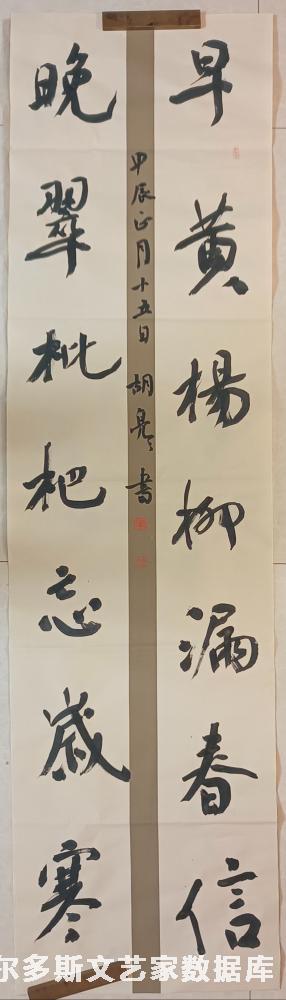 早黄杨柳漏春信
晚翠枇杷忘岁寒
甲辰正月十五日 胡亮书
尔多斯文艺家数据库